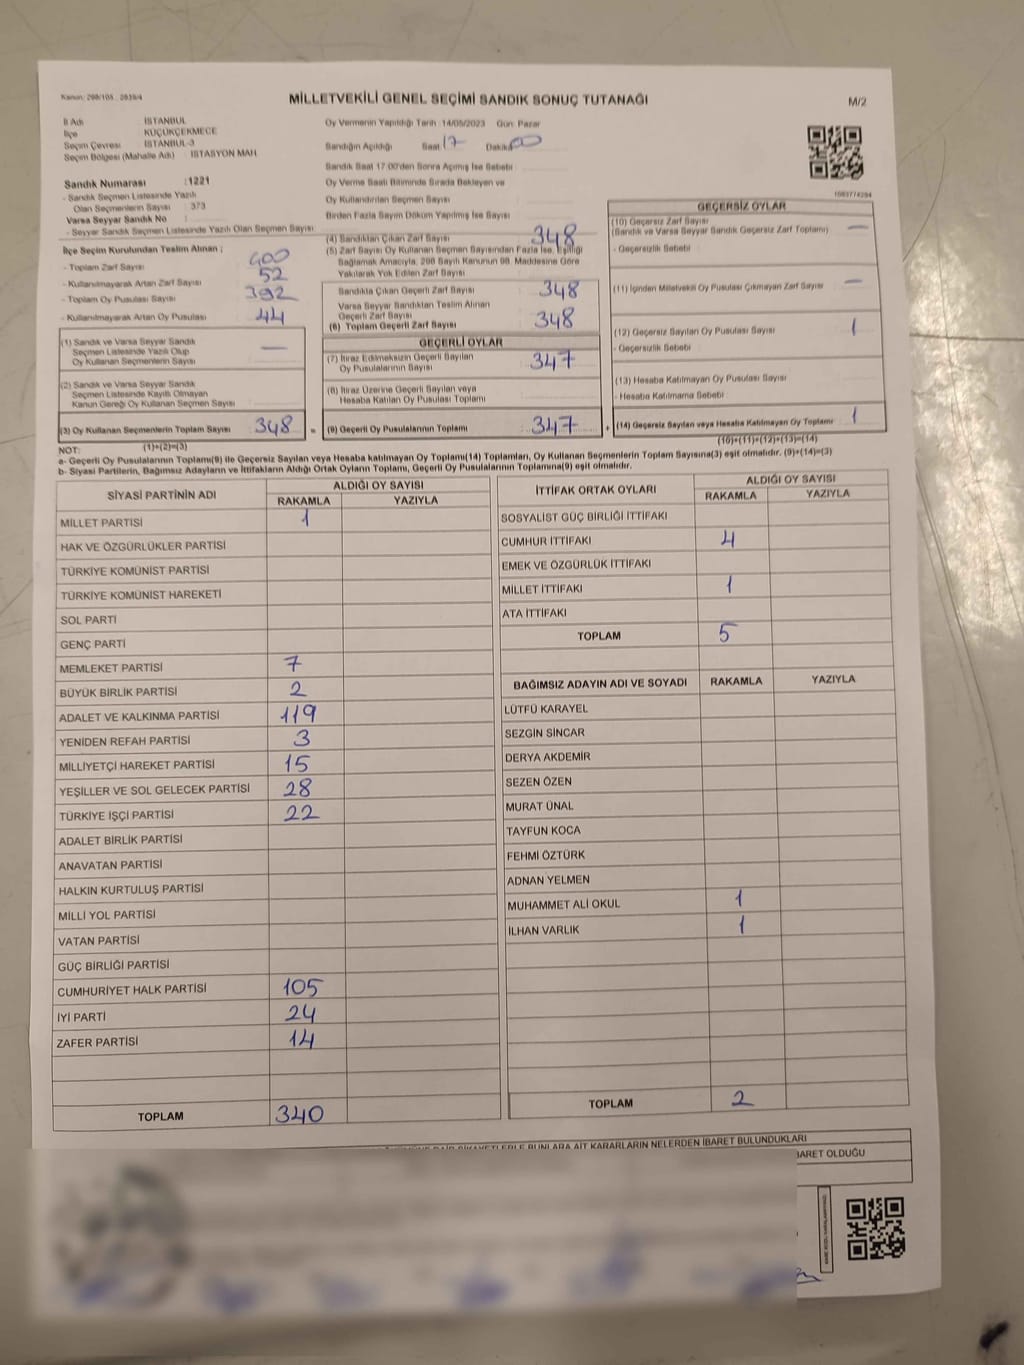 Kanun: 298/105 - 2839/4
MİLLETVEKİLİ GENEL SEÇİMİ SANDIK SONUÇ TUTANAĞI
M/2
İl Adı İSTANBUL
İlçe KÜÇÜKÇEKMECE
Seçim Çevresi İSTANBUL-3
Seçim Bölgesi (Mahalle Adı) : İSTASYON MAH.
Sandık Numarası :1221
- Sandık Seçmen Listesinde Yazılı
Olan Seçmenlerin Sayısı : 373
Varsa Seyyar Sandık No :
- Seyyar Sandık Seçmen Listesinde Yazılı Olan Seçmen Sayısı :
Oy Vermenin Yapıldığı Tarih :14/05/2023 Gün: Pazar
Sandığın Açıldığı Saat 17 Dakika 00
Sandık Saat 17:00'den Sonra Açılmış İse Sebebi :
Oy Verme Saati Bitiminde Sırada Bekleyen ve
Oy Kullandırılan Seçmen Sayısı :
Birden Fazla Sayım Döküm Yapılmış İse Sayısı :
İlçe Seçim Kurulundan Teslim Alınan ;
- Toplam Zarf Sayısı 400
- Kullanılmayarak Artan Zarf Sayısı 52
- Toplam Oy Pusulası Sayısı 392
- Kullanılmayarak Artan Oy Pusulası 44
(1) Sandık ve Varsa Seyyar Sandık
Seçmen Listesinde Yazılı Olup
Oy Kullanan Seçmenlerin Sayısı —
(2) Sandık ve Varsa Seyyar Sandık
Seçmen Listesinde Kayıtlı Olmayan
Kanun Gereği Oy Kullanan Seçmen Sayısı
(3) Oy Kullanan Seçmenlerin Toplam Sayısı 348
(4) Sandıktan Çıkan Zarf Sayısı 348
(5) Zarf Sayısı Oy Kullanan Seçmen Sayısından Fazla İse, Eşitliği
Sağlamak Amacıyla, 298 Sayılı Kanunun 98. Maddesine Göre
Yakılarak Yok Edilen Zarf Sayısı
Sandıkta Çıkan Geçerli Zarf Sayısı 348
Varsa Seyyar Sandıktan Teslim Alınan
Geçerli Zarf Sayısı
(6) Toplam Geçerli Zarf Sayısı 348
GEÇERLİ OYLAR
(7) İtiraz Edilmeksizin Geçerli Sayılan
Oy Pusulalarının Sayısı 347
(8) İtiraz Üzerine Geçerli Sayılan veya
Hesaba Katılan Oy Pusulası Toplamı
= (9) Geçerli Oy Pusulalarının Toplamı 347 +
GEÇERSİZ OYLAR
(10) Geçersiz Zarf Sayısı
(Sandık ve Varsa Seyyar Sandık Geçersiz Zarf Toplamı) —
- Geçersizlik Sebebi :
(11) İçinden Milletvekili Oy Pusulası Çıkmayan Zarf Sayısı —
(12) Geçersiz Sayılan Oy Pusulası Sayısı 1
- Geçersizlik Sebebi
(13) Hesaba Katılmayan Oy Pusulası Sayısı
- Hesaba Katılmama Sebebi
(14) Geçersiz Sayılan veya Hesaba Katılmayan Oy Toplamı 1
NOT: (1)+(2)=(3) (10)+(11)+(12)+(13)=(14)
a- Geçerli Oy Pusulalarının Toplamı(9) ile Geçersiz Sayılan veya Hesaba katılmayan Oy Toplamı(14) Toplamları, Oy Kullanan Seçmenlerin Toplam Sayısına(3) eşit olmalıdır. (9)+(14)=(3)
b- Siyasi Partilerin, Bağımsız Adayların ve İttifakların Aldığı Ortak Oyların Toplamı, Geçerli Oy Pusulalarının Toplamına(9) eşit olmalıdır.
SİYASİ PARTİNİN ADI ALDIĞI OY SAYISI
RAKAMLA YAZIYLA
MİLLET PARTİSİ 1
HAK VE ÖZGÜRLÜKLER PARTİSİ
TÜRKİYE KOMÜNİST PARTİSİ
TÜRKİYE KOMÜNİST HAREKETİ
SOL PARTİ
GENÇ PARTİ
MEMLEKET PARTİSİ 7
BÜYÜK BİRLİK PARTİSİ 2
ADALET VE KALKINMA PARTİSİ 119
YENİDEN REFAH PARTİSİ 3
MİLLİYETÇİ HAREKET PARTİSİ 15
YEŞİLLER VE SOL GELECEK PARTİSİ 28
TÜRKİYE İŞÇİ PARTİSİ 22
ADALET BİRLİK PARTİSİ
ANAVATAN PARTİSİ
HALKIN KURTULUŞ PARTİSİ
MİLLİ YOL PARTİSİ
VATAN PARTİSİ
GÜÇ BİRLİĞİ PARTİSİ
CUMHURİYET HALK PARTİSİ 105
İYİ PARTİ 24
ZAFER PARTİSİ 14
TOPLAM 340
İTTİFAK ORTAK OYLARI ALDIĞI OY SAYISI
RAKAMLA YAZIYLA
SOSYALİST GÜÇ BİRLİĞİ İTTİFAKI
CUMHUR İTTİFAKI 4
EMEK VE ÖZGÜRLÜK İTTİFAKI
MİLLET İTTİFAKI 1
ATA İTTİFAKI
TOPLAM 5
BAĞIMSIZ ADAYIN ADI VE SOYADI RAKAMLA YAZIYLA
LÜTFÜ KARAYEL
SEZGİN SİNCAR
DERYA AKDEMİR
SEZEN ÖZEN
MURAT ÜNAL
TAYFUN KOCA
FEHMİ ÖZTÜRK
ADNAN YELMEN
MUHAMMET ALİ OKUL 1
İLHAN VARLIK 1
TOPLAM 2
KARARLARIN NELERDEN İBARET BULUNDUKLARI
BARET OLDUĞU